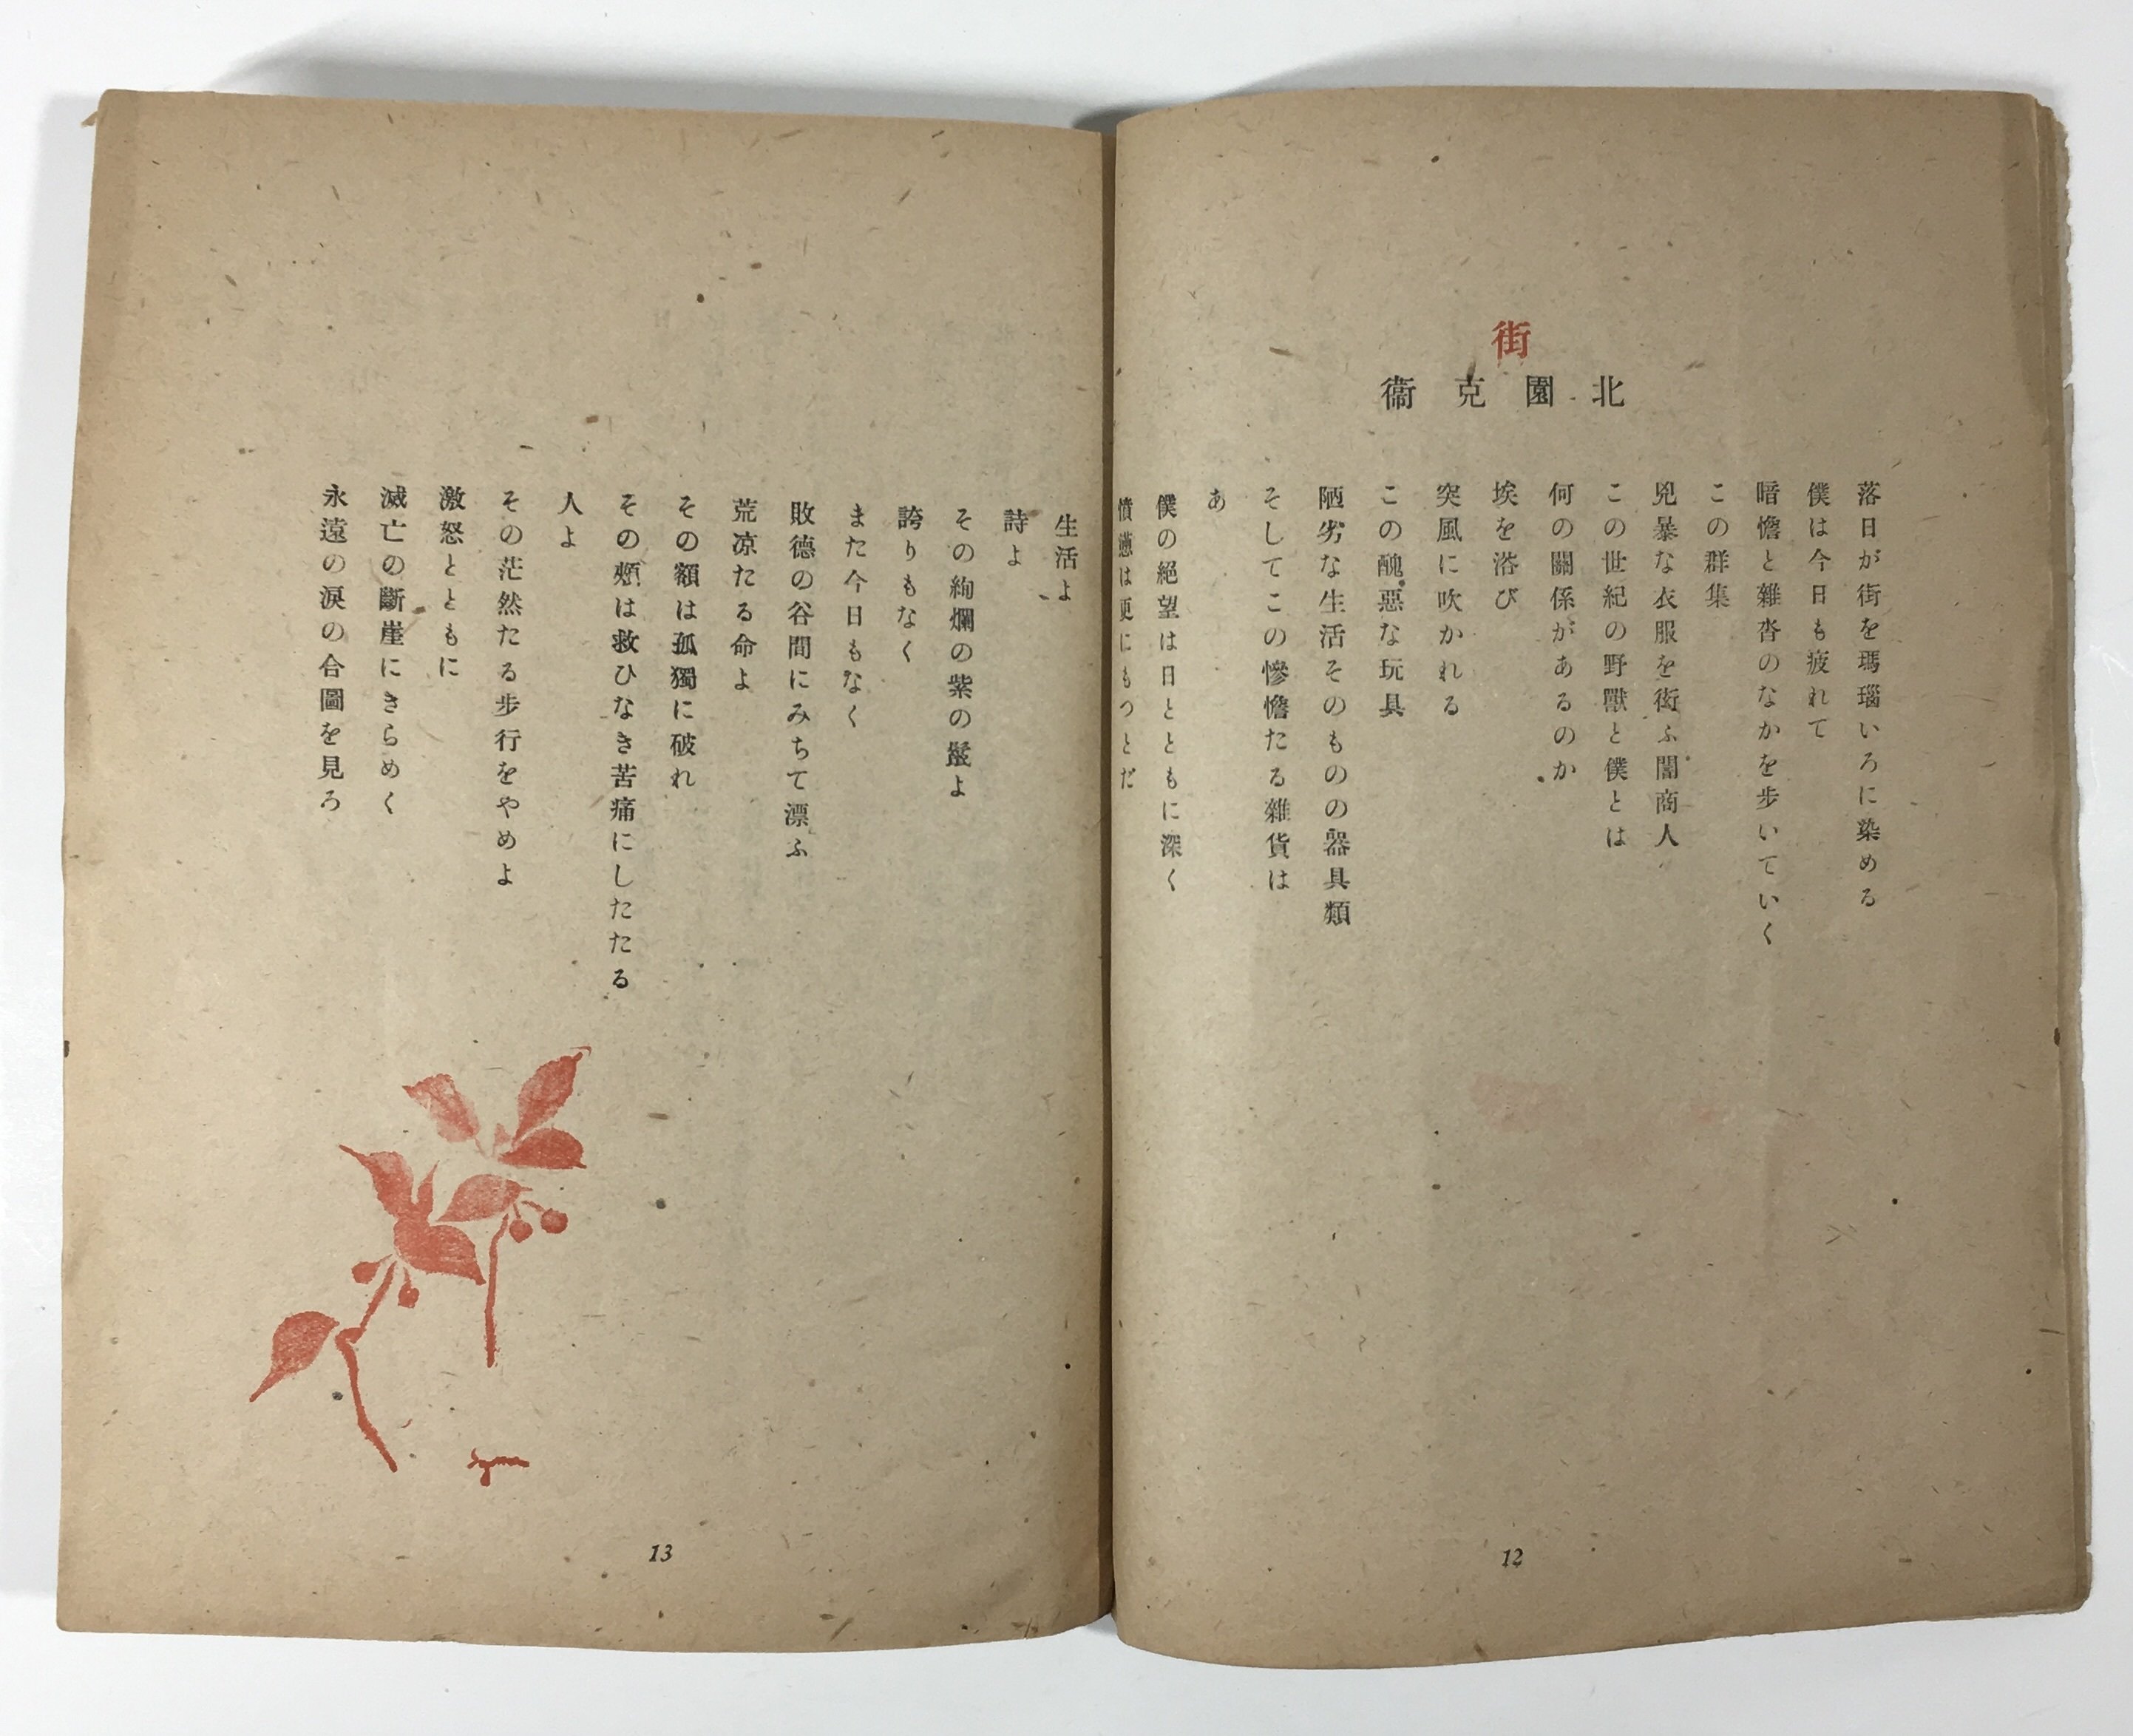 街
北園克衞
落日が街を瑪瑙いろに染める
僕は今日も疲れて
暗憺と雜沓のなかを歩いていく
この群集
兇暴な衣服を衒ふ闇商人
この世紀の野獸と僕とは
何の關係があるのか
埃を浴び
突風に吹かれる
この醜惡な玩具
陋劣な生活そのものの器具類
そしてこの慘憺たる雜貨は
あ
僕の絕望は日とともに深く
憤懣は更にもつとだ
12
生活よ
詩よ
その絢爛の紫の鬣よ
誇りもなく
また今日もなく
敗德の谷間にみちて漂ふ
荒凉たる命よ
その額は孤獨に破れ
その頰は救ひなき苦痛にしたたる
人よ
その茫然たる歩行をやめよ
激怒とともに
滅亡の斷崖にきらめく
永遠の淚の合圖を見ろ
13